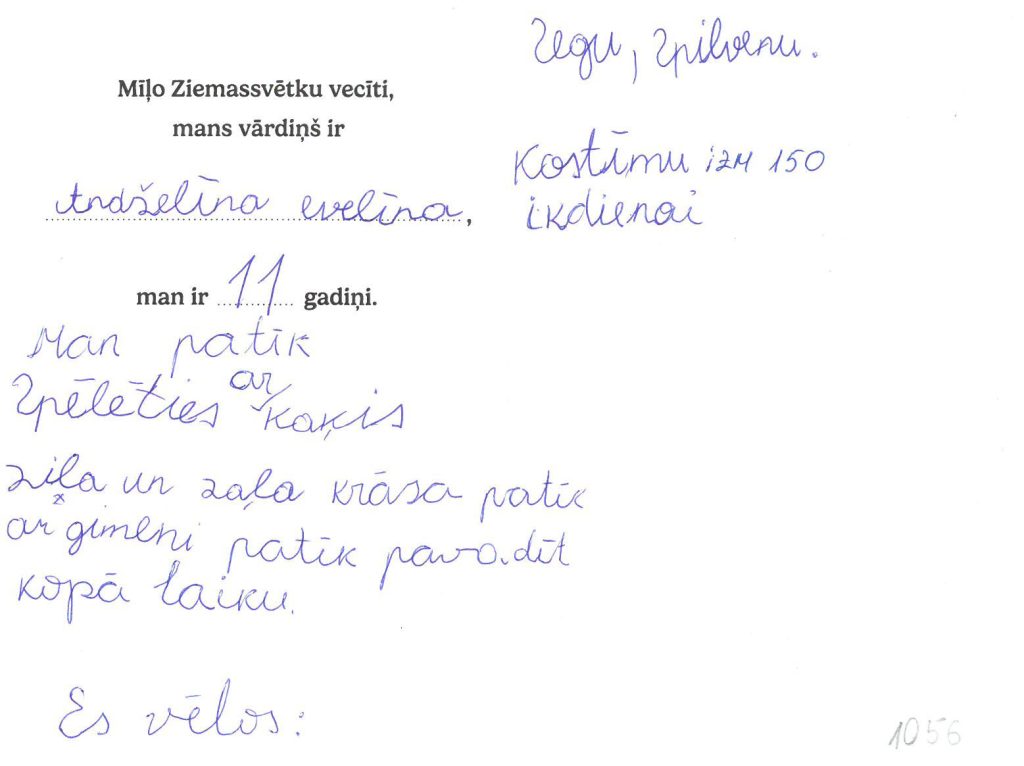 Mīļo Ziemassvētku vecīti,
mans vārdiņš ir
Andželīna evelīna,
man ir 11 gadiņi.
Man patīk
Spēlēties ar kaķis
ziļa un zaļa krāsa patīk
ar ģimeni patīk pavadīt
kopā laiku.
Es vēlos:
Segu, spilvenu.
Kostīmu izm 150
ikdienai
1056